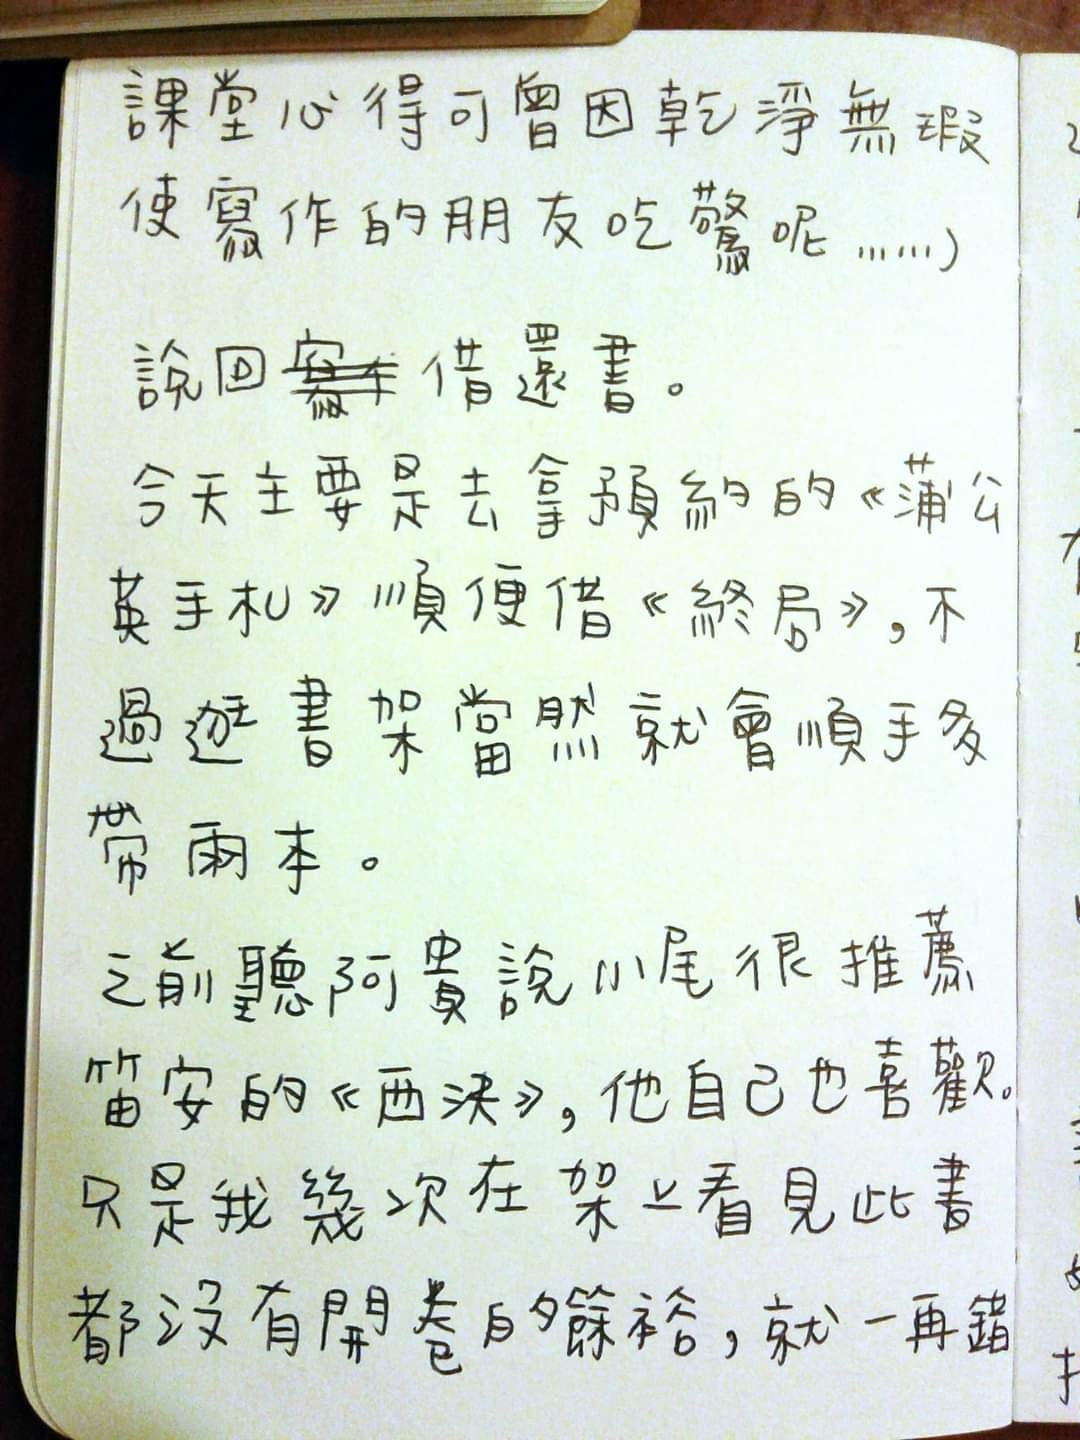 課堂心得可曾因乾淨無瑕
使寫作的朋友吃驚呢……)
說回借還書。
今天主要是去拿預約的《蒲公
英手札》順便借《終局》,不
過逛書架當然就會順手多
帶兩本。
之前聽阿貴說小尾很推薦
笛安的《西決》,他自己也喜歡。
只是我幾次在架上看見此書
都沒有開卷的餘裕,就一再錯